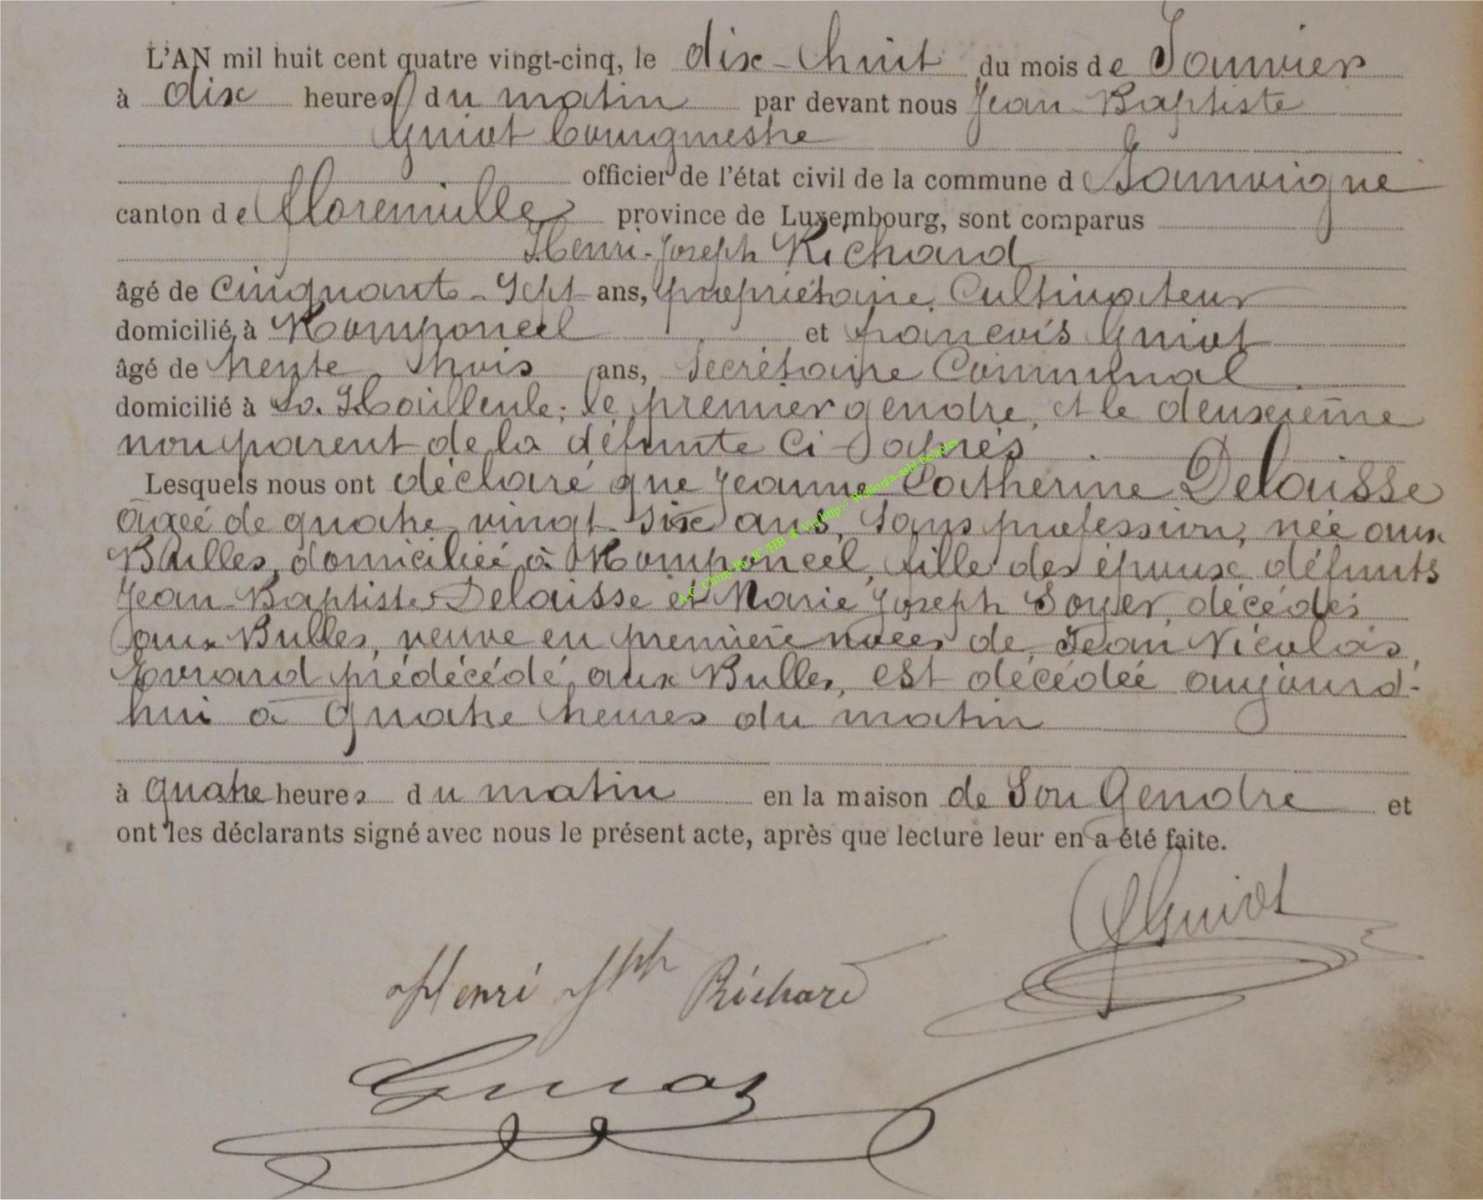 L'AN mil huit cent quatre vingt-cinq, le dix-huit du mois de Janvier
à dix heures du matin par devant nous Jean Baptiste
Guiot bourgmestre
officier de l'état civil de la commune de Jamoigne
canton de Florenville province de Luxembourg, sont comparus
Henri-Joseph Richard
âgé de cinquante-sept ans, propriétaire Cultivateur
domicilié à Romponcel et françois Guiot
âgé de trente trois ans, Secrétaire Communal
domicilié à La Hailleule; le premier gendre, et le deuxième
non parent de la défunte ci-après
Lesquels nous ont déclaré que Jeanne Catherine Delaisse
agée de quatre vingt six ans, sans profession, née aux
Bulles, domiciliée à Romponcel, fille des époux défunts
Jean-Baptiste Delaisse et Marie Joseph Soyer, décédés
aux Bulles, veuve en première noces de Jean Nicolas
Evrard prédécédé aux Bulles, est décédée aujourd-
hui à quatre heures du matin
à quatre heures du matin en la maison de Son Gendre et
ont les déclarants signé avec nous le présent acte, après que lecture leur en a été faite.
Guiot
Henri Jph Richard